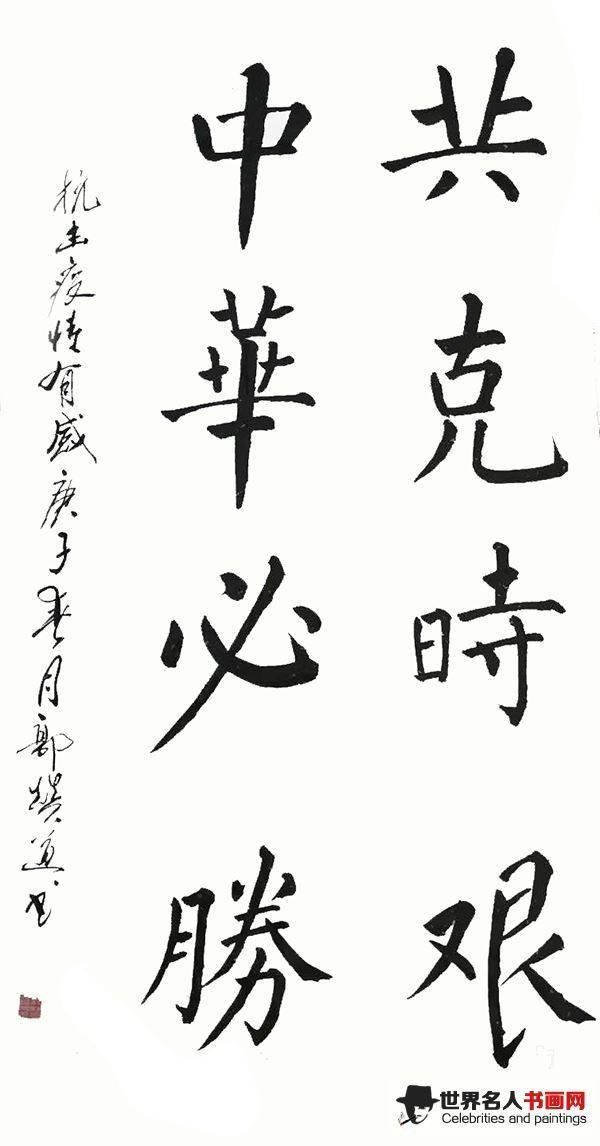 共克時艰
中華必勝
抗击疫情有感庚子春月郭道书
世界名人书画网
Celebrities and paintings